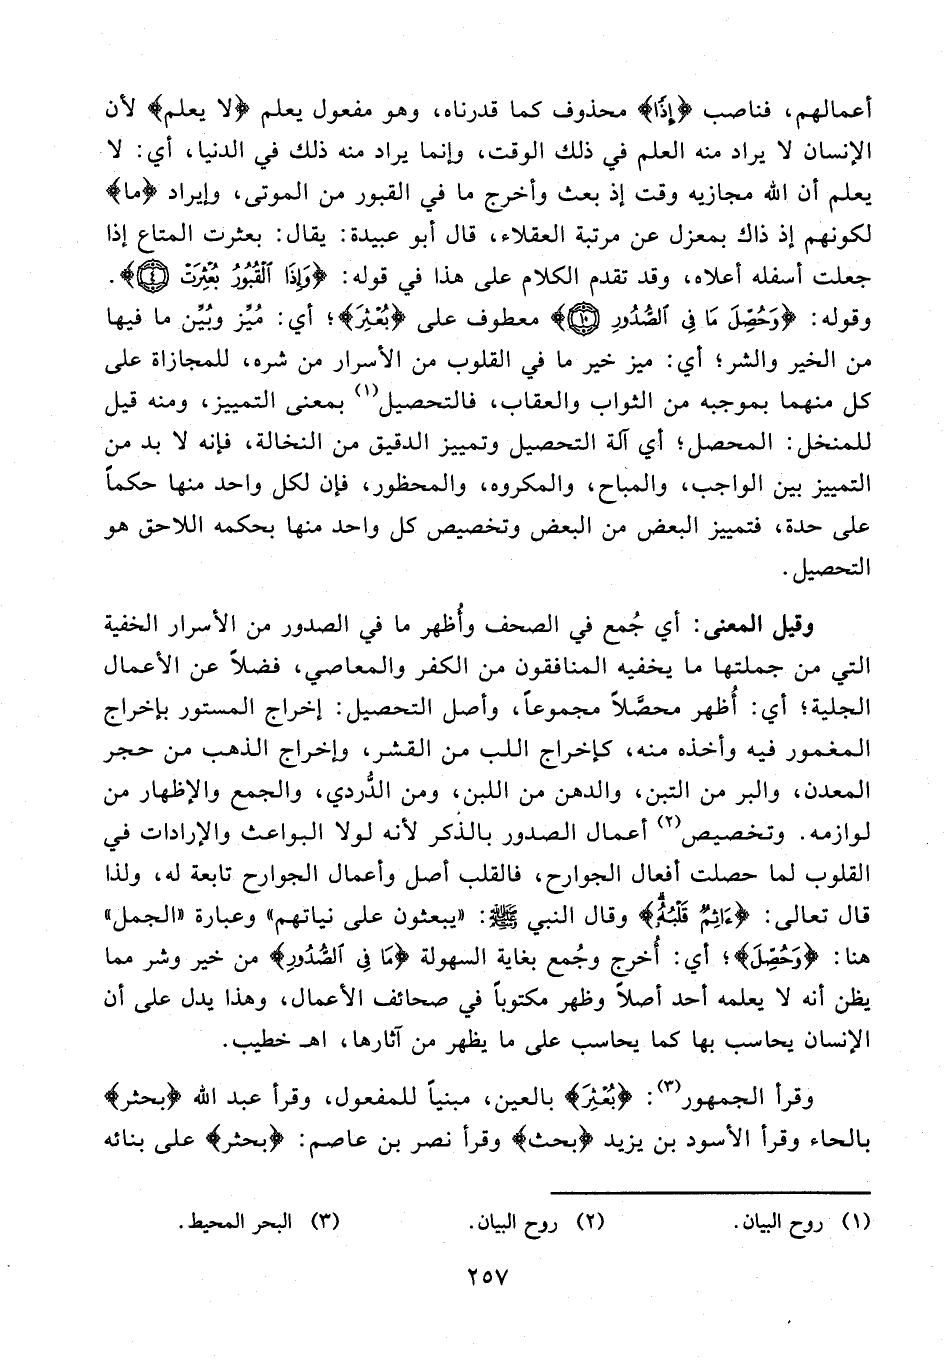 أعمالهم، فناصب ﴿إِذَا﴾ محذوف كما قدرناه، وهو مفعول يعلم ﴿لا يعلم﴾ لأن
الإنسان لا يراد منه العلم في ذلك الوقت، وإنما يراد منه ذلك في الدنيا، أي: لا
يعلم أن الله مجازيه وقت إذ بعث وأخرج ما في القبور من الموتى، وإيراد ﴿ما﴾
لكونهم إذ ذاك بمعزل عن مرتبة العقلاء، قال أبو عبيدة: يقال: بعثرت المتاع إذا
جعلت أسفله أعلاه، وقد تقدم الكلام على هذا في قوله: ﴿وَإِذَا ٱلْقُبُورُ بُعْثِرَتْ ٤﴾.
وقوله: ﴿وَحُصِّلَ مَا فِى ٱلصُّدُورِ ١٠﴾ معطوف على ﴿بُعْثِرَ﴾؛ أي: مُيِّز وبُيِّن ما فيها
من الخير والشر؛ أي: ميز خير ما في القلوب من الأسرار من شره، للمجازاة على
كل منهما بموجبه من الثواب والعقاب، فالتحصيل(١) بمعنى التمييز، ومنه قيل
للمنخل: المحصل؛ أي آلة التحصيل وتمييز الدقيق من النخالة، فإنه لا بد من
التمييز بين الواجب، والمباح، والمكروه، والمحظور، فإن لكل واحد منها حكماً
على حدة، فتمييز البعض من البعض وتخصيص كل واحد منها بحكمه اللاحق هو
التحصيل.
وقيل المعنى: أي جُمع في الصحف وأُظهر ما في الصدور من الأسرار الخفية
التي من جملتها ما يخفيه المنافقون من الكفر والمعاصي، فضلاً عن الأعمال
الجلية؛ أي: أُظهر محصَّلاً مجموعاً، وأصل التحصيل: إخراج المستور بإخراج
المغمور فيه وأخذه منه، كإخراج اللب من القشر، وإخراج الذهب من حجر
المعدن، والبر من التبن، والدهن من اللبن، ومن الدُّردي، والجمع والإظهار من
لوازمه. وتخصيص(٢) أعمال الصدور بالذكر لأنه لولا البواعث والإرادات في
القلوب لما حصلت أفعال الجوارح، فالقلب أصل وأعمال الجوارح تابعة له، ولذا
قال تعالى: ﴿ءَاثِمٌ قَلْبُهُۥ﴾ وقال النبي ﷺ: «يبعثون على نياتهم» وعبارة «الجمل»
هنا: ﴿وَحُصِّلَ﴾؛ أي: أُخرج وجُمع بغاية السهولة ﴿مَا فِى ٱلصُّدُورِ﴾ من خير وشر مما
يظن أنه لا يعلمه أحد أصلاً وظهر مكتوباً في صحائف الأعمال، وهذا يدل على أن
الإنسان يحاسب بها كما يحاسب على ما يظهر من آثارها، اهـ خطيب.
وقرأ الجمهور(٣): ﴿بُعْثِرَ﴾ بالعين، مبنياً للمفعول، وقرأ عبد الله ﴿بحثر﴾
بالحاء وقرأ الأسود بن يزيد ﴿بحث﴾ وقرأ نصر بن عاصم: ﴿بحثر﴾ على بنائه
(١) روح البيان. (٢) روح البيان. (٣) البحر المحيط.
٢٥٧